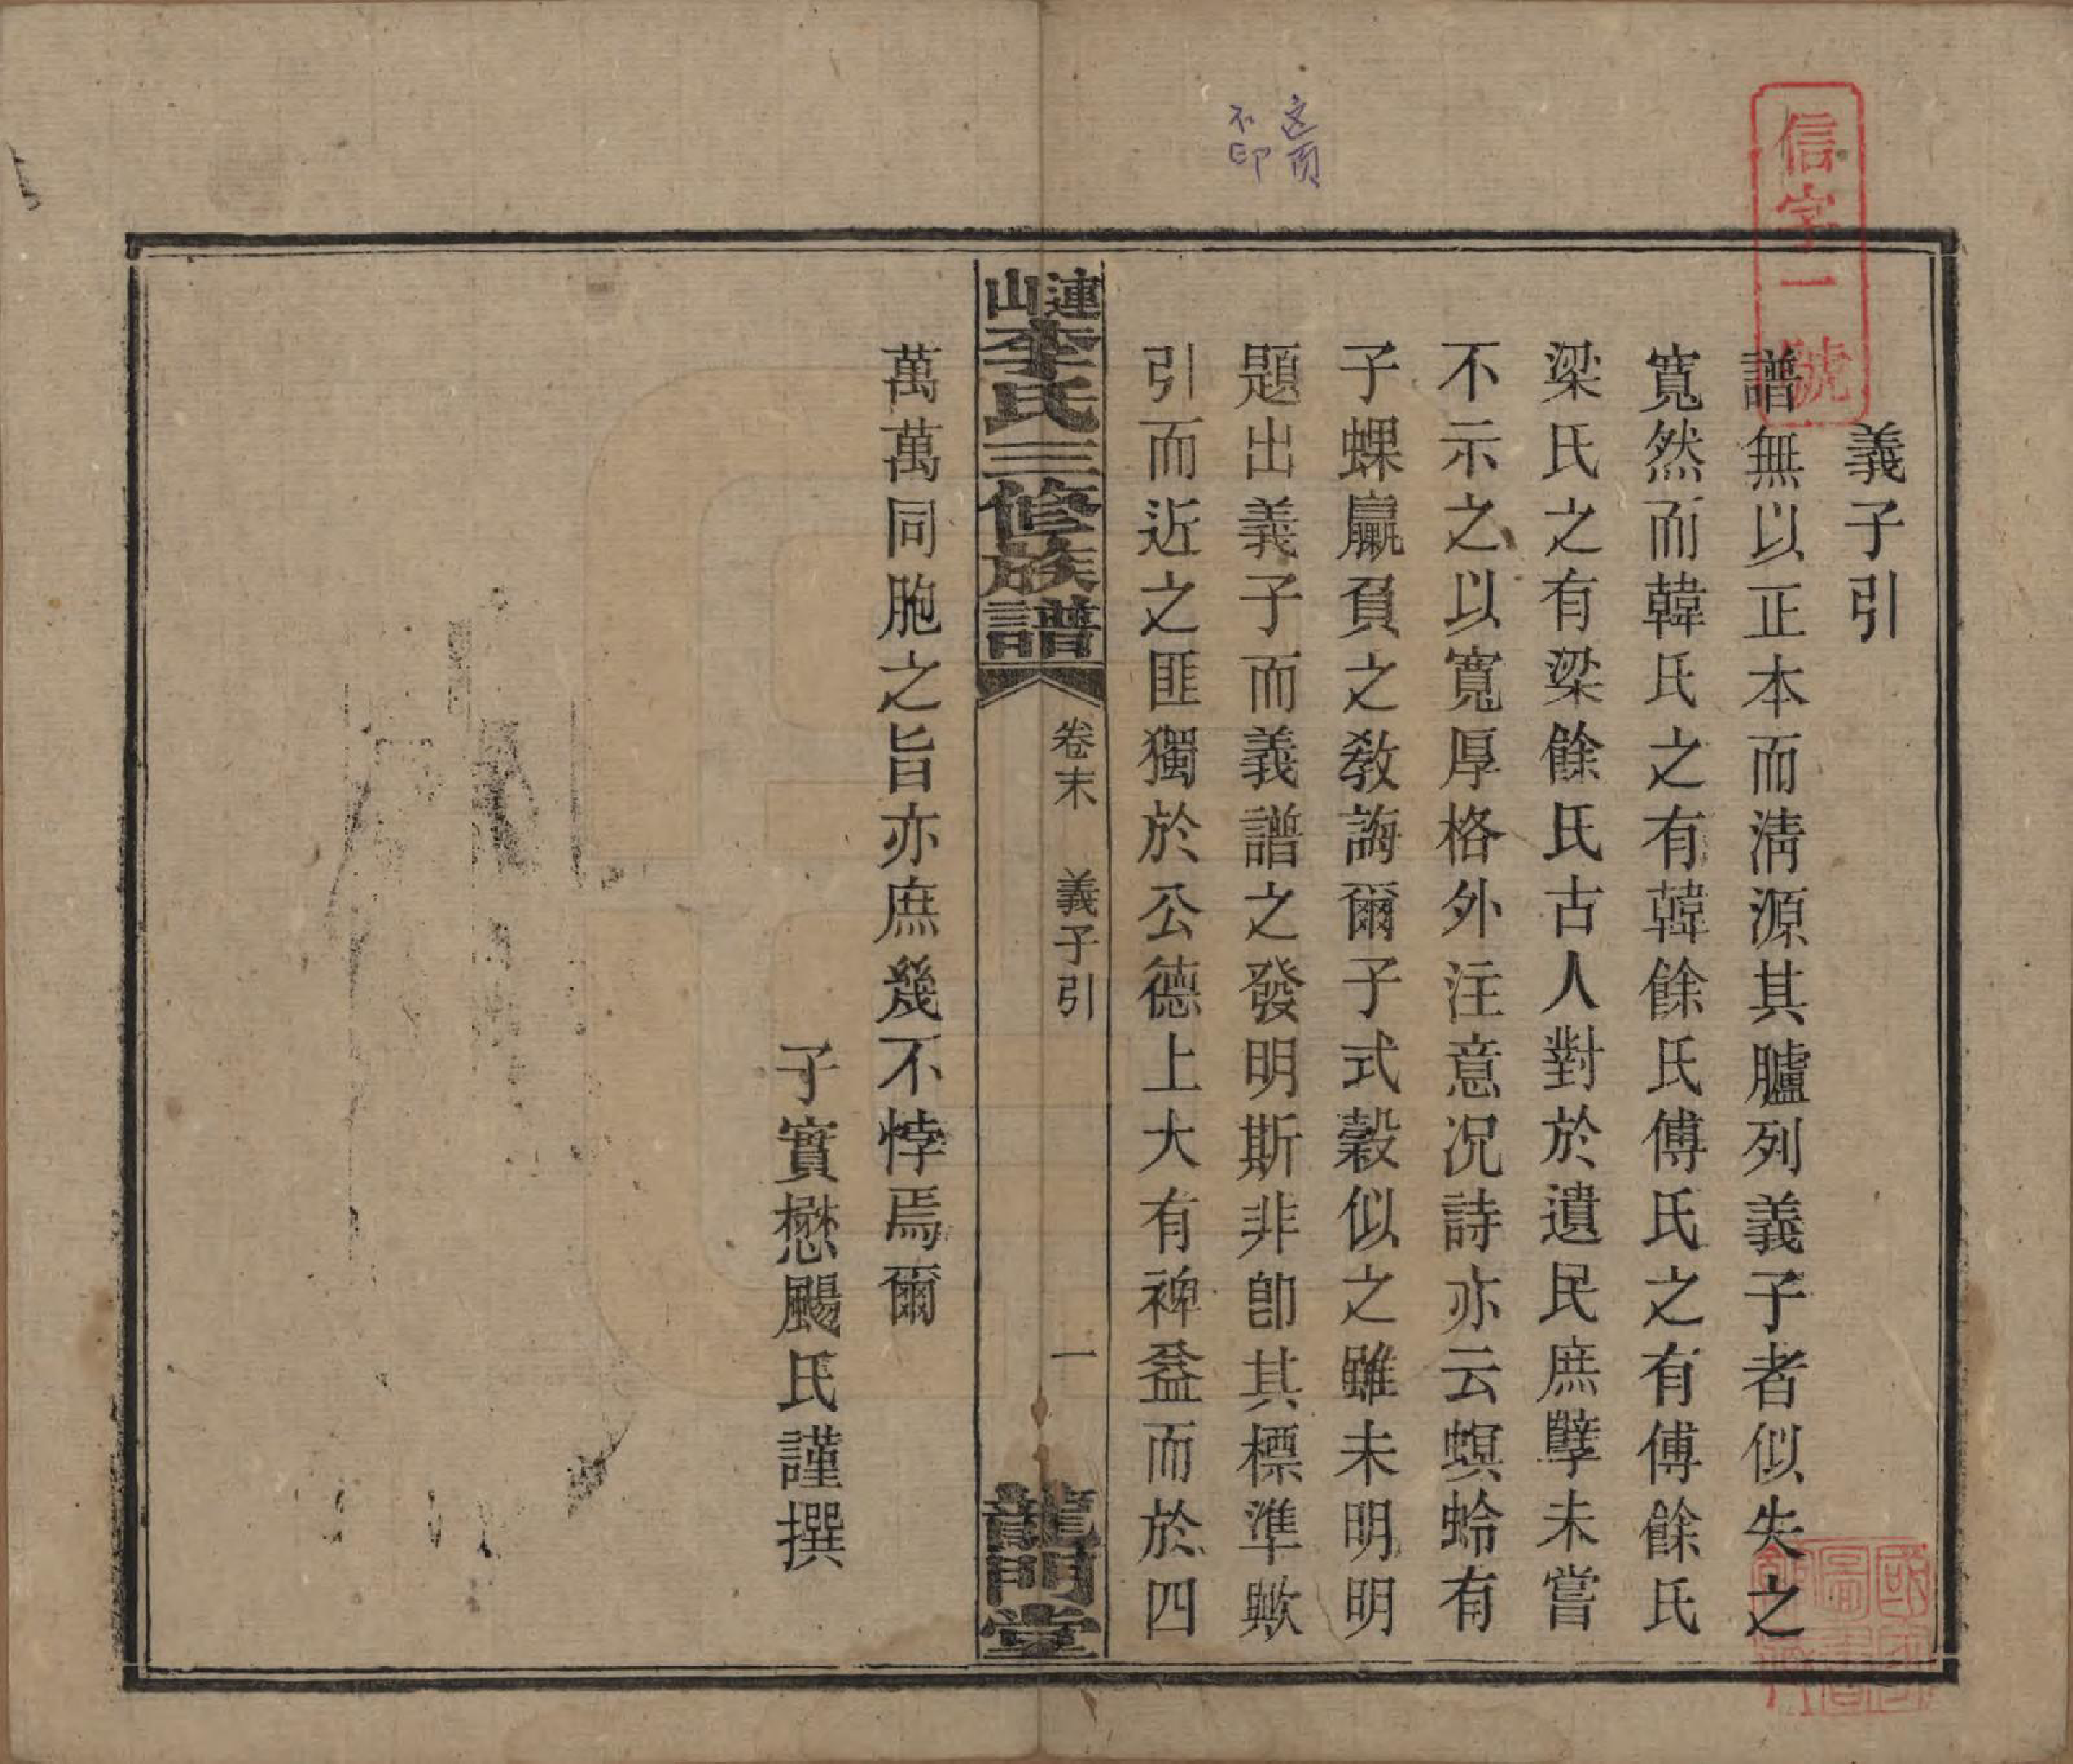 信字一號
这页
不印
義子引
譜無以正本而淸源其臚列義子者似失之
寬然而韓氏之有韓餘氏傅氏之有傅餘氏
梁氏之有梁餘氏古人對於遺民庶孼未嘗
不示之以寬厚格外注意况詩亦云螟蛉有
子蜾臝負之敎誨爾子式穀似之雖未明明
題出義子而義譜之發明斯非卽其標準歟
引而近之匪獨於公德上大有裨益而於四
連山李氏三修族譜
卷末 義子引
一
龍門堂
萬萬同胞之旨亦庶幾不悖焉爾
子實懋颺氏謹撰